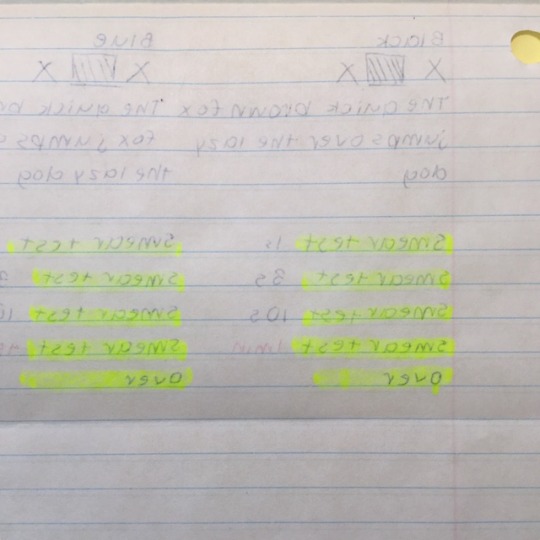 Black Blue
X X X X
The quick brown fox The quick br
jumps over the lazy fox jumps
dog the lazy dog
Smear test 1s Smear test
Smear test 8s Smear test
Smear test 10s Smear test
Smear test 1min Smear test
over over